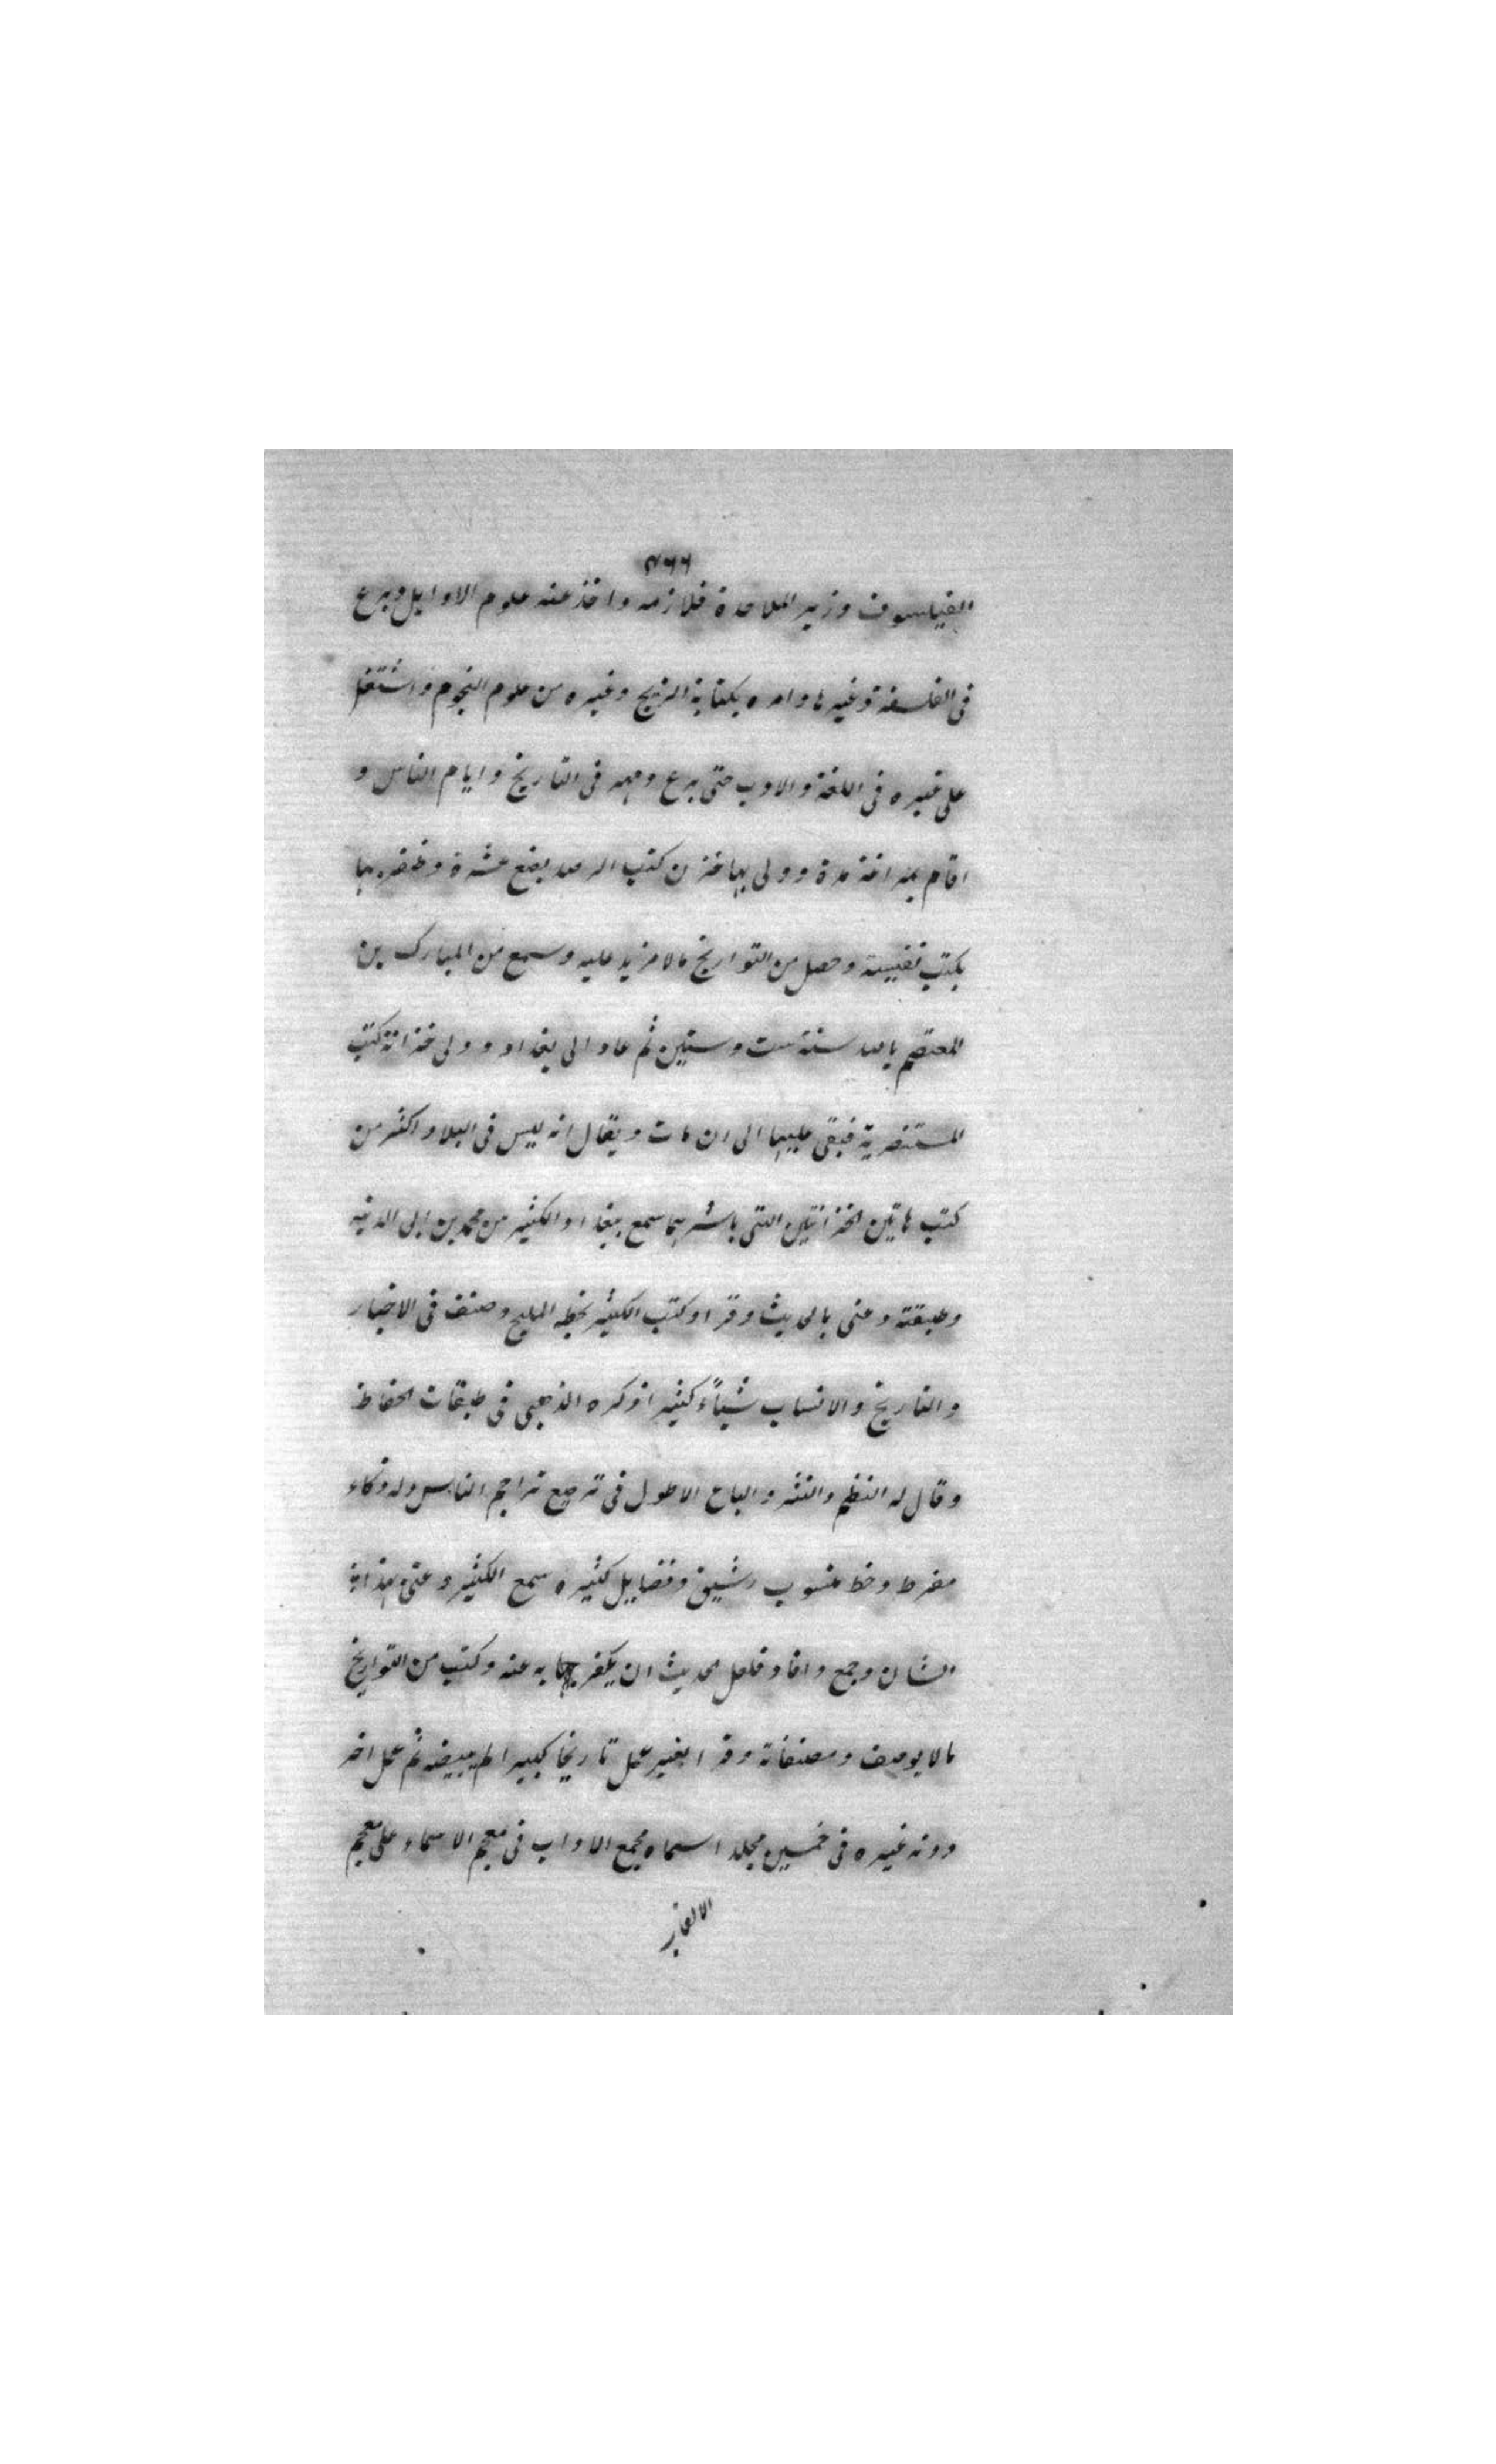 ٤٦٦
الفيلسوف وزير الملاحدة فلازمه واخذ عنه علوم الاوايل وبرع
فى الفلسفة وغيرها وامره بكتابة الزيج وغيره من علوم النجوم واشتغل
على غيره فى اللغة والادب حتى برع ومهر فى التاريخ وايام الناس و
اقام بمراغة مدة وولى بها خزن كتب الرصد بضع عشرة وظفر بها
بكتب نفيسة وحصل من التواريخ مالا مزيد عليه وسمع من المبارك بن
المعتصم بالله سنة ست وستين ثم عاد الى بغداد وولى خزانة كتب
المستنصرية فبقى عليها الى ان مات ويقال انه ليس فى البلاد اكثر من
كتب هاتين الخزانتين التى باشرهما سمع ببغداد الكثير من محمد بن ابى الدينه
وطبقته وعنى بالحديث وقرا وكتب الكثير بخطه المليح وصنف فى الاخبار
والتاريخ والانساب شيئاً كثيرا ذكره الذهبى فى طبقات الحفاظ
وقال له النظم والنثر والباع الاطول فى ترصيع تراجم الناس وله ذكاء
مفرط وخط منسوب رشيق وفضايل كثيره سمع الكثير وعنى بهذا
الشان وجمع وافاد فلعل الحديث ان يكفر به عنه وكتب من التواريخ
مالا يوصف ومصنفاته وقر ابغير عمل تاريخا كبيرا لم يبيضه ثم عمل اخر
دونه غيره فى خمسين مجلدا سماه مجمع الاداب فى معجم الاسماء على معجم
الالقاب